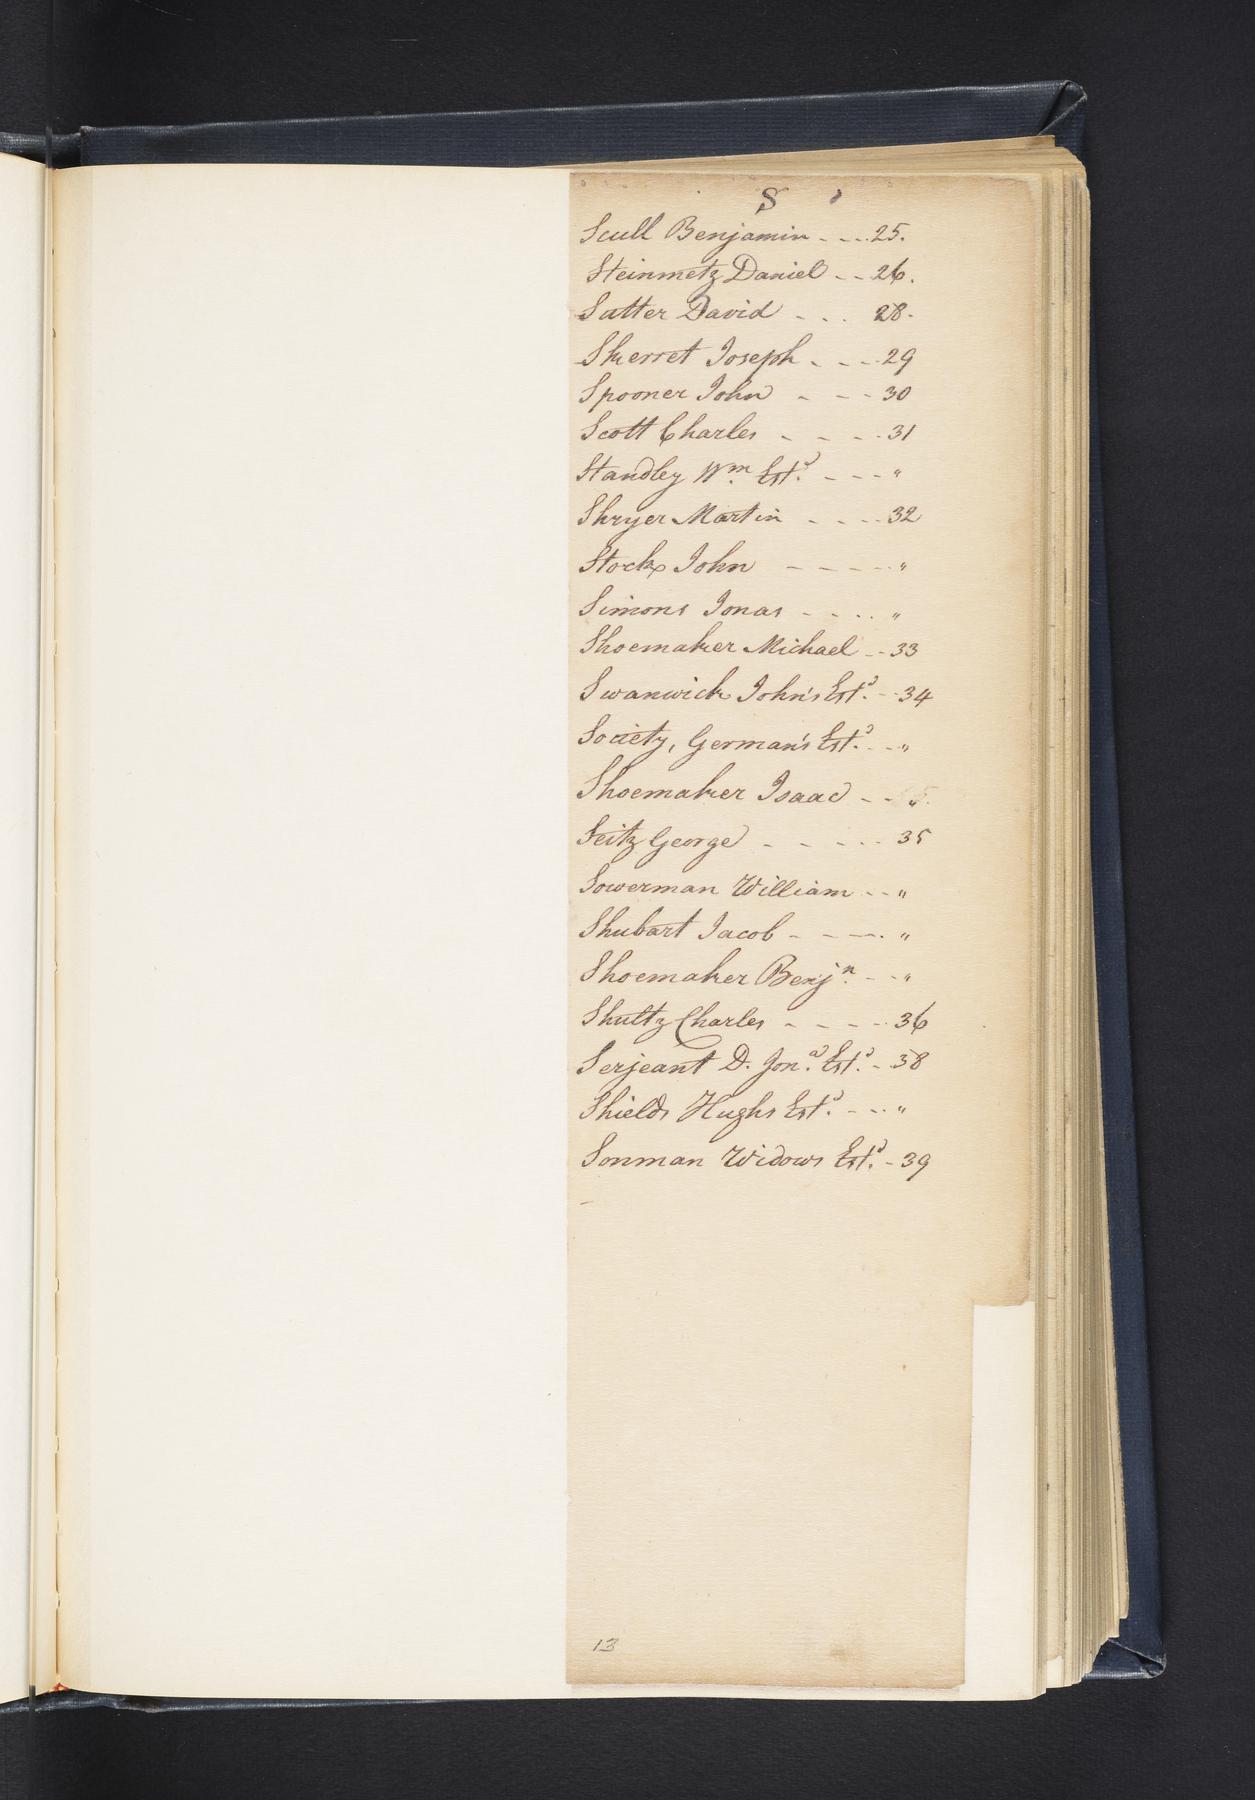 S
Scull Benjamin - - - 25.
Steinmetz Daniel - - 26.
Sutter David - - - 28.
Skerret Joseph - - - 29
Spooner John - - - 30
Scott Charles - - - - 31
Standley Wm. Estd. - - - "
Shryer Martin - - - - 32
Stock John - - - - - "
Simons Jonas - - - - "
Shoemaker Michael - - 33
Swanwick John's Estd. - - 34
Society, German's Estd. - - "
Shoemaker Isaac - - "
Seitz George - - - - - 35
Sowerman William - - "
Shubart Jacob - - - - "
Shoemaker Benjn. - - "
Shultz Charles - - - - 36
Serjeant D. Jona. Estd. - 38
Shields Hughs Estd. - - - "
Sonman Widows Estd. - 39
13